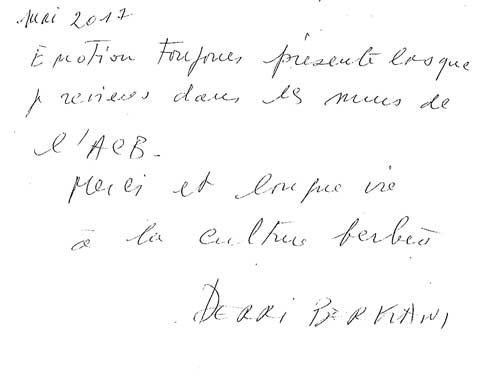 Mai 2017
Emotion toujours présente lorsque
je reviens dans les murs de
l'ACB.
Merci et longue vie
à la culture berbère
DERRI BERKANI